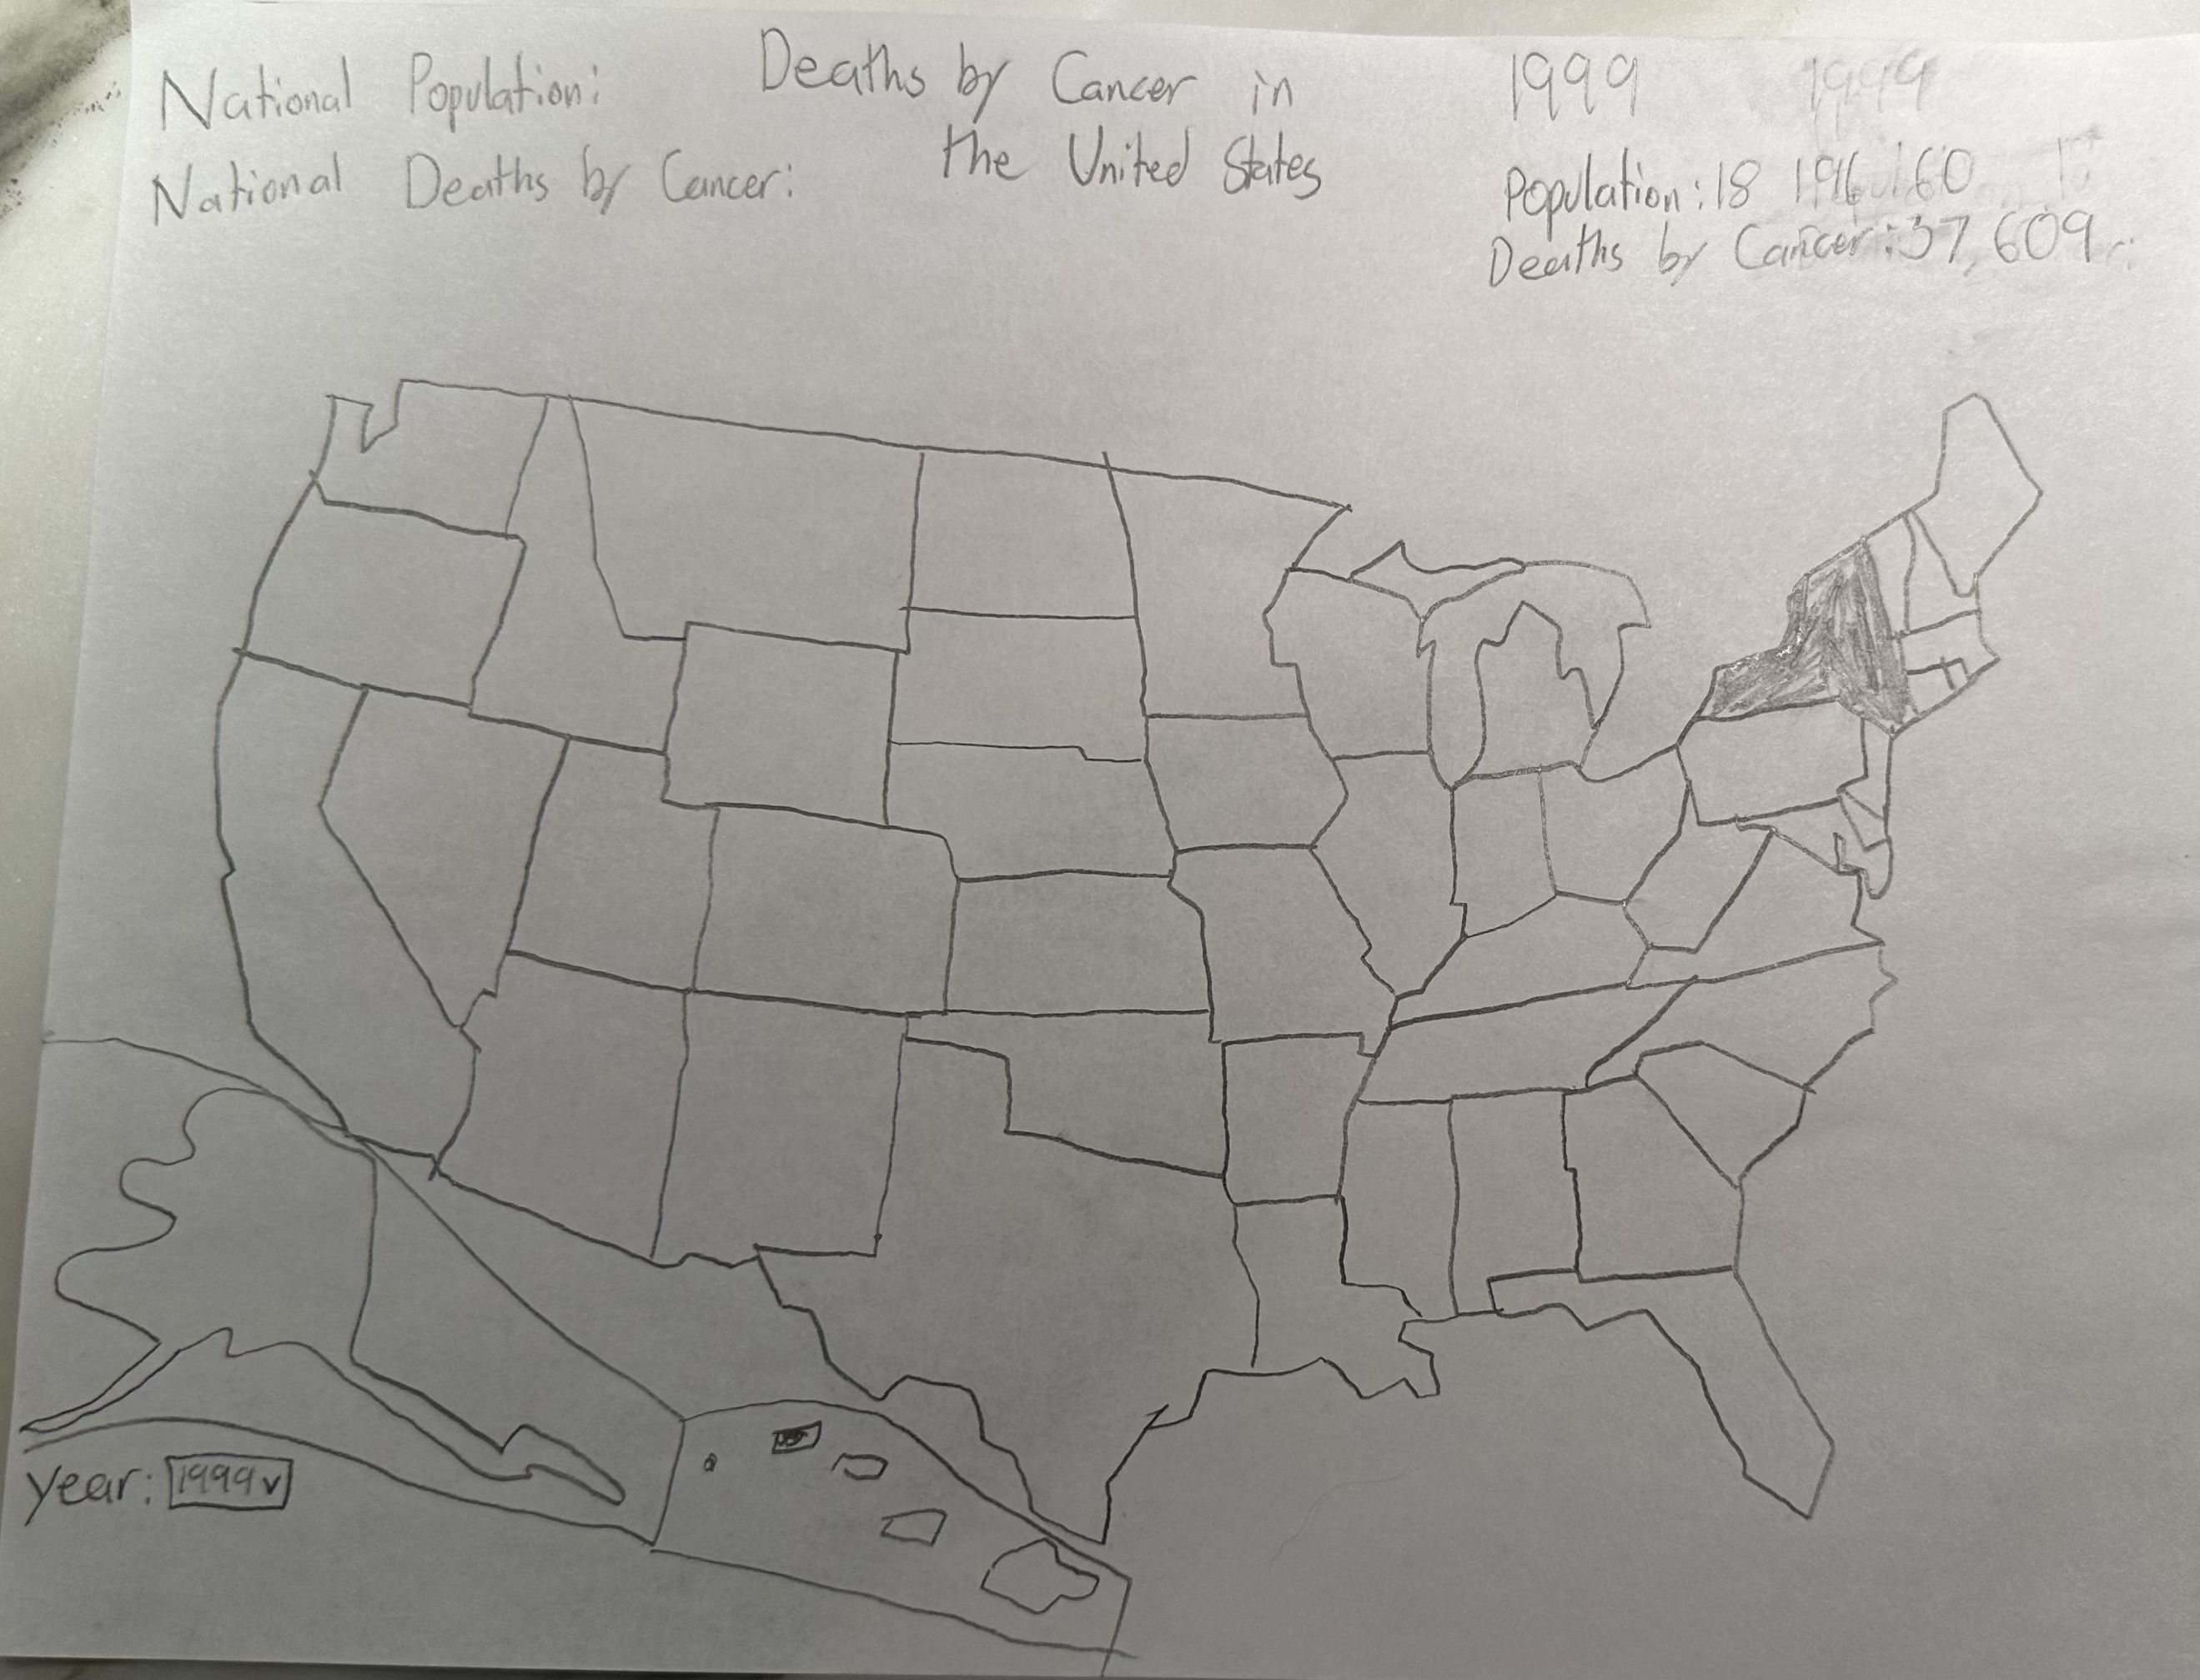 National Population:
National Deaths by Cancer:
Deaths by Cancer in
the United States
1999 1999
Population: 18 196 160
Deaths by Cancer: 37,609
year: 1999 v